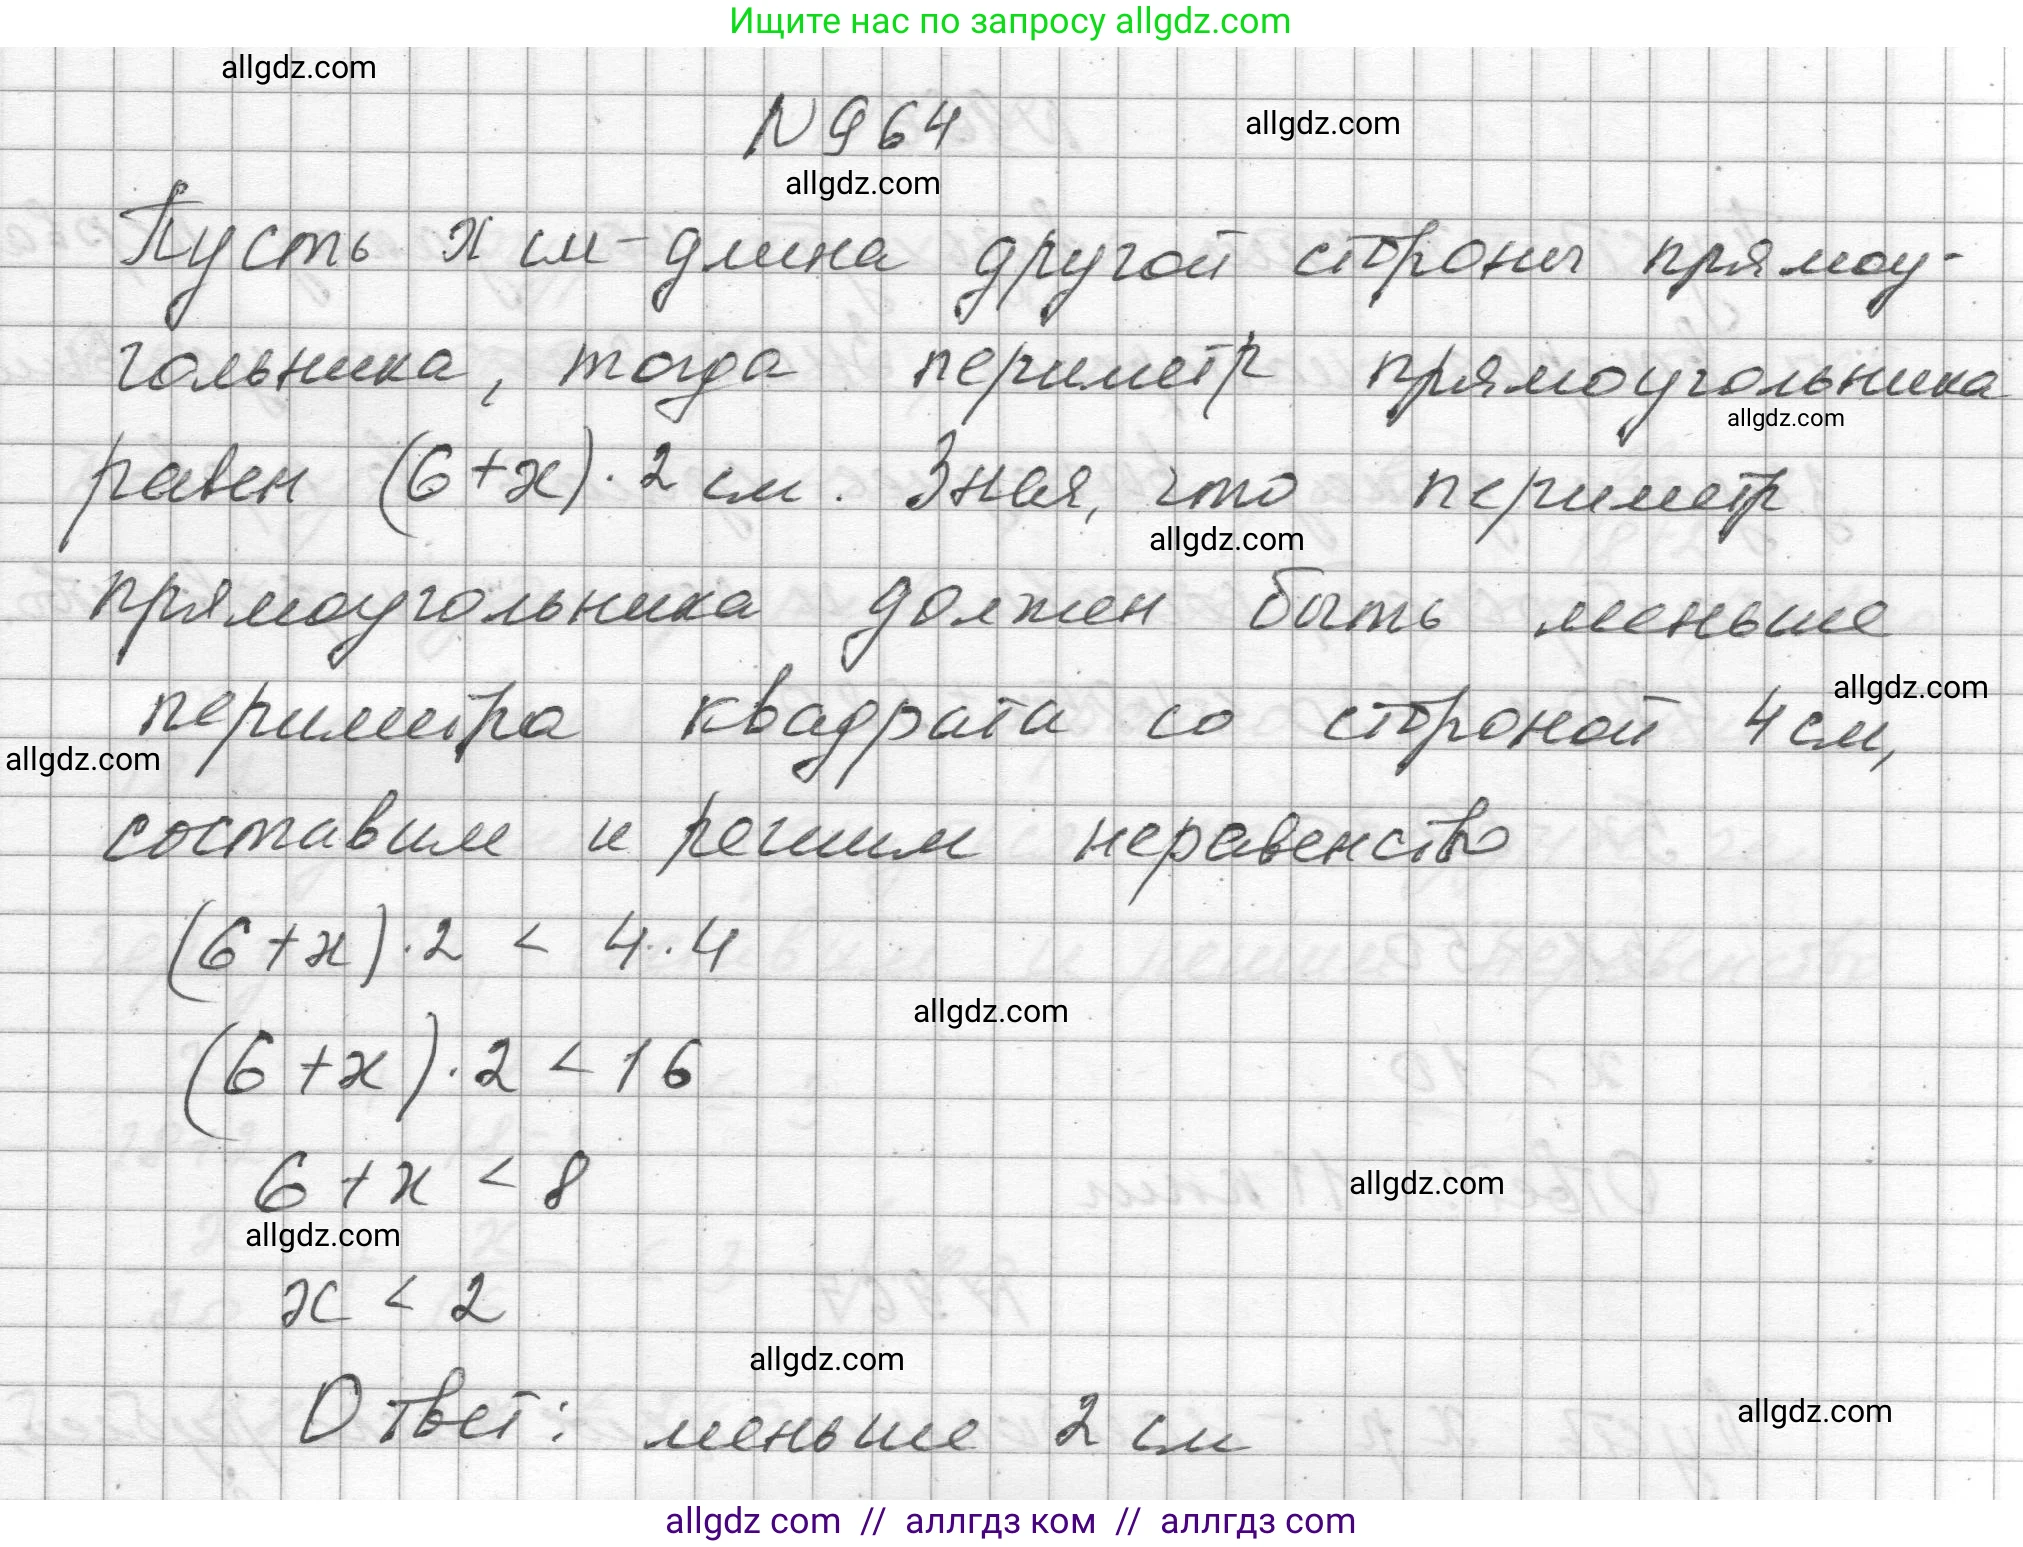 Ищите нас по запросу allgdz.com
allgdz.com
N 964
allgdz.com
allgdz.com
Пусть x см - длина другой стороны прямоу-
гольника, тогда периметр прямоугольника
allgdz.com
равен (6+x)·2 см. Зная, что периметр
allgdz.com
прямоугольника должен быть меньше
allgdz.com
периметра квадрата со стороной 4 см,
allgdz.com
составим и решим неравенство
(6+x)·2 < 4·4
allgdz.com
(6+x)·2 < 16
6+x < 8
allgdz.com
allgdz.com
x < 2
allgdz.com
Ответ: меньше 2 см
allgdz.com
allgdz com // аллгдз ком // аллгдз com